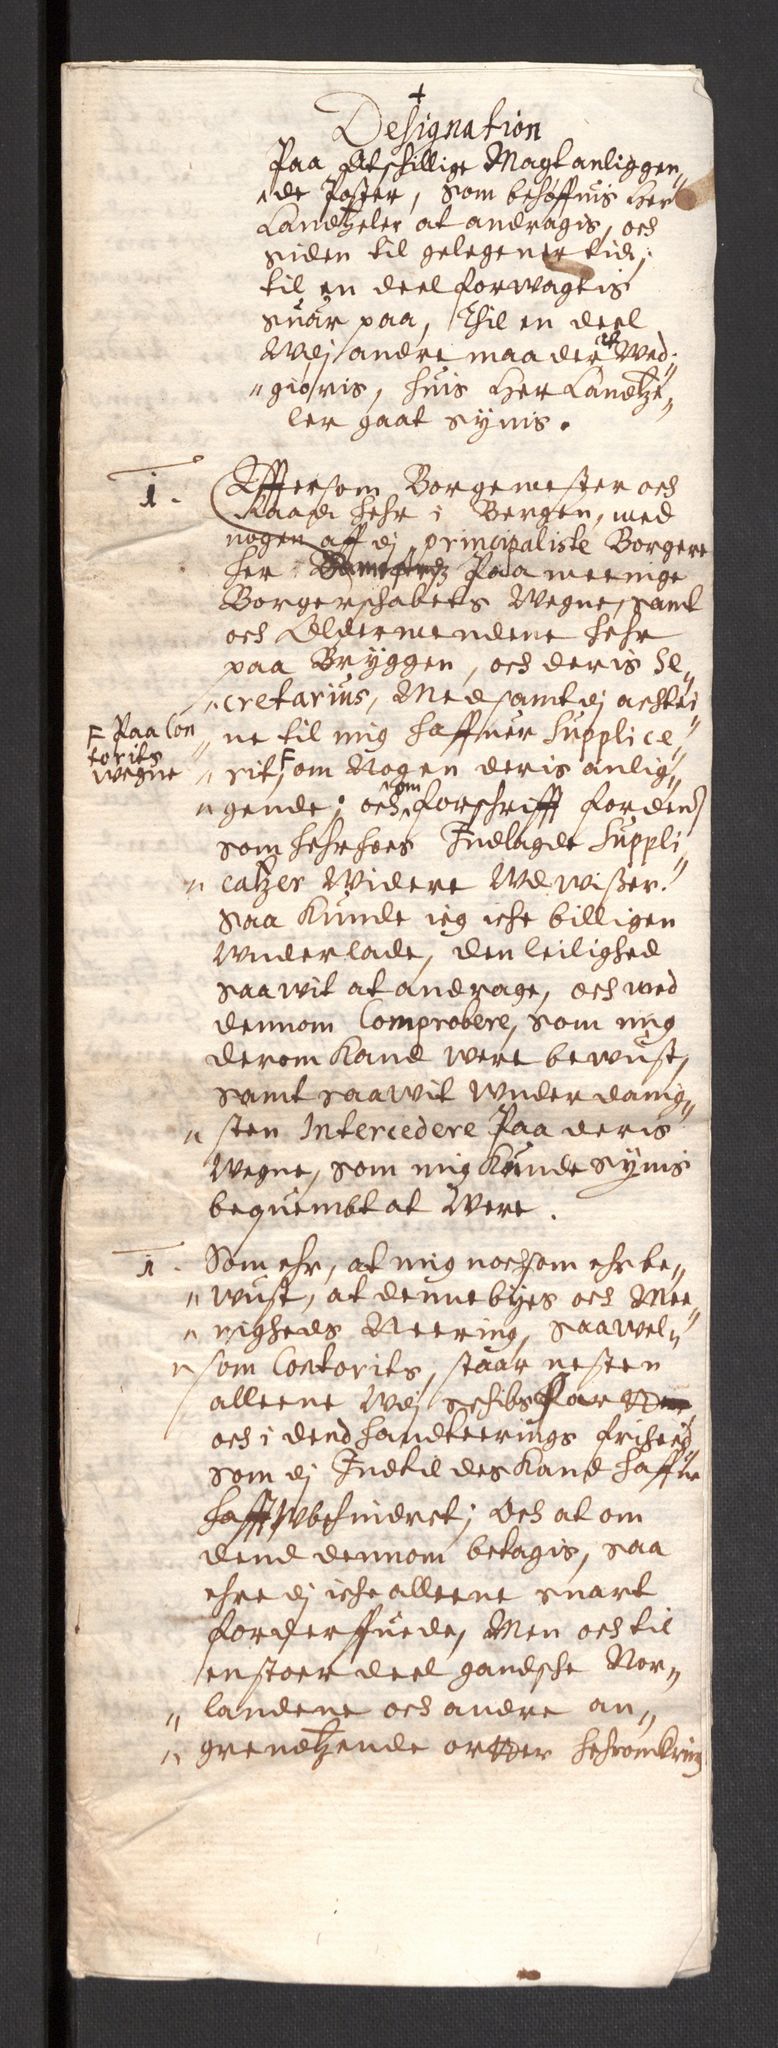 Designation
Paa Atschillige Magtanliggen„
„de Poster, som behøffuis Her
Landtzeler at andragis, och
siden til gelegener tid,
til en deel forwagtis
suar paa, Thil en deel
Wdj andre maader at Wed„
„giøris, huis Her Landtze„
ler gaat synis.
1. Efftersom Borgemester och
Raad hehr i Bergen, med
nogen aff dj principaliste Borgere
her Paa meenige
Borgerschabets Wegne, samt
och Oldermendene hehr
paa Bryggen, och deris Se„
„cretarius, Med samt dj achtei„
„ne til mig haffuer Supplice„
F Paa Con
torits
wegne
„rit, F om Nogen deris anlig„
„gende; och om forschrifft fordend
som hehrhoes Indlagde Suppli„
„catzer Widere Wdwißer.
Saa kunde ieg iche billigen
Wnderlade, den leilighed
saawit at andrage, och wed
dennom Comprobere, som mig
derom kand were bewust,
samt saawit Wnderdanig„
„sten Intercedere Paa deris
Wegne, som mig kunde synis
bequembt at Were.
1. Som ehr, at mig nochsom ehr be„
„wust, at denne byes och Mee„
„nigheds Neering, saawel„
„som Contorits, staar nesten
alleene Wdj schibsfart
och i dend handteerings friheed
som dj Indtil des kand haffue
hafft Wbehindret; Och at om
dend dennom betagis, saa
ehre dj iche alleene snart
forderffuede, Men och til
en stoer deel gandsche Nor„
„landene och andre an„
„grendtzende orter hehromkring